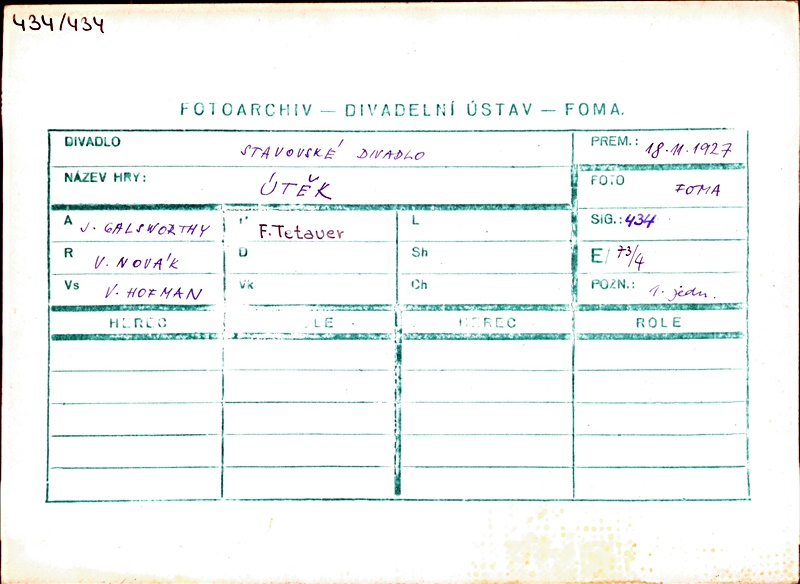 434/434
FOTOARCHIV — DIVADELNÍ ÚSTAV — FOMA.
DIVADLO STAVOVSKÉ DIVADLO PREM.: 18.11.1927
NÁZEV HRY: ÚTĚK FOTO FOMA
A J. GALSWORTHY F. Tetauer L SIG.: 434
R V. NOVÁK D Sh E/ 73/4
Vs V. HOFMAN Vk Ch POZN.: 1. jedn.
HEREC LE HEREC ROLE